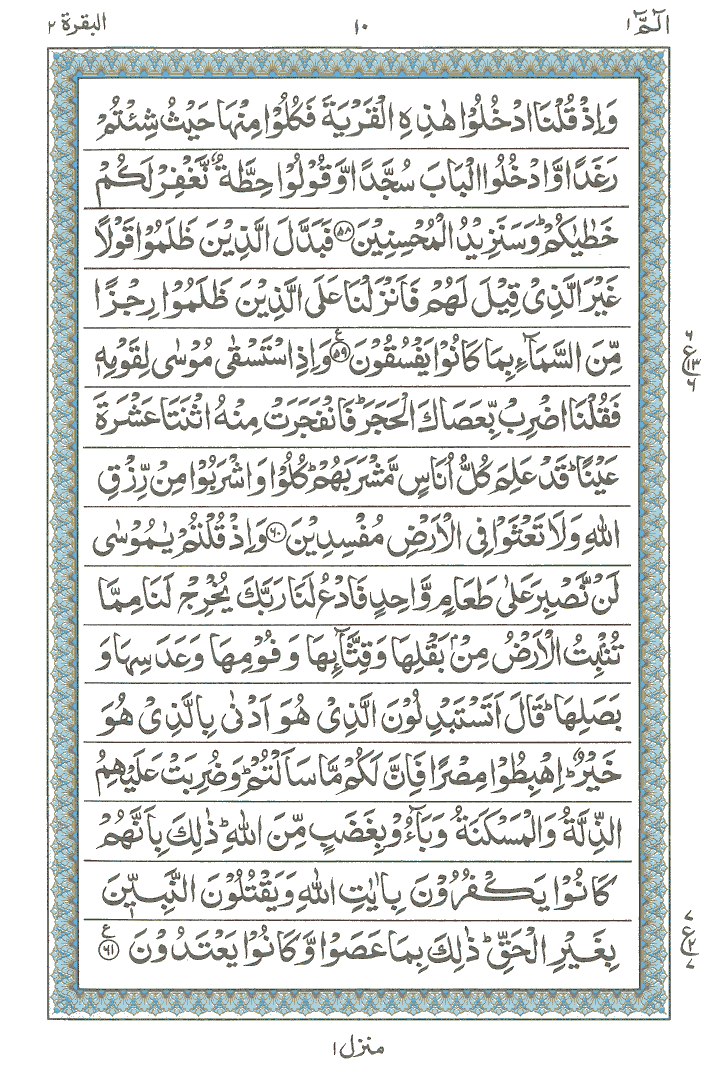 الٓمّٓ ١ ١٠ البقرة ٢
وَاِذْ قُلْنَا ادْخُلُوْا هٰذِهِ الْقَرْيَةَ فَكُلُوْا مِنْهَا حَيْثُ شِئْتُمْ
رَغَدًا وَّادْخُلُوا الْبَابَ سُجَّدًا وَّقُوْلُوْا حِطَّةٌ نَّغْفِرْ لَكُمْ
خَطٰيٰكُمْ ؕ وَسَنَزِيْدُ الْمُحْسِنِيْنَ ﴿۵۸﴾ فَبَدَّلَ الَّذِيْنَ ظَلَمُوْا قَوْلًا
غَيْرَ الَّذِيْ قِيْلَ لَهُمْ فَاَنْزَلْنَا عَلَى الَّذِيْنَ ظَلَمُوْا رِجْزًا
مِّنَ السَّمَآءِ بِمَا كَانُوْا يَفْسُقُوْنَ ﴿۵۹﴾ ع وَاِذِ اسْتَسْقٰى مُوْسٰى لِقَوْمِهٖ
فَقُلْنَا اضْرِبْ بِّعَصَاكَ الْحَجَرَ ؕ فَانْفَجَرَتْ مِنْهُ اثْنَتَا عَشْرَةَ
عَيْنًا ؕ قَدْ عَلِمَ كُلُّ اُنَاسٍ مَّشْرَبَهُمْ ؕ كُلُوْا وَاشْرَبُوْا مِنْ رِّزْقِ
اللّٰهِ وَلَا تَعْثَوْا فِى الْاَرْضِ مُفْسِدِيْنَ ﴿۶۰﴾ وَاِذْ قُلْتُمْ يٰمُوْسٰى
لَنْ نَّصْبِرَ عَلٰى طَعَامٍ وَّاحِدٍ فَادْعُ لَنَا رَبَّكَ يُخْرِجْ لَنَا مِمَّا
تُنْۢبِتُ الْاَرْضُ مِنْۢ بَقْلِهَا وَقِثَّآئِهَا وَفُوْمِهَا وَعَدَسِهَا وَ
بَصَلِهَا ؕ قَالَ اَتَسْتَبْدِلُوْنَ الَّذِيْ هُوَ اَدْنٰى بِالَّذِيْ هُوَ
خَيْرٌ ؕ اِهْبِطُوْا مِصْرًا فَاِنَّ لَكُمْ مَّا سَاَلْتُمْ ؕ وَضُرِبَتْ عَلَيْهِمُ
الذِّلَّةُ وَالْمَسْكَنَةُ وَبَآءُوْ بِغَضَبٍ مِّنَ اللّٰهِ ؕ ذٰلِكَ بِاَنَّهُمْ
كَانُوْا يَكْفُرُوْنَ بِاٰيٰتِ اللّٰهِ وَيَقْتُلُوْنَ النَّبِيّٖنَ
بِغَيْرِ الْحَقِّ ؕ ذٰلِكَ بِمَا عَصَوْا وَّكَانُوْا يَعْتَدُوْنَ ﴿۶۱﴾ ع
۶
ع ۱۳
۶
۷
ع ۲
۷
منزل ١